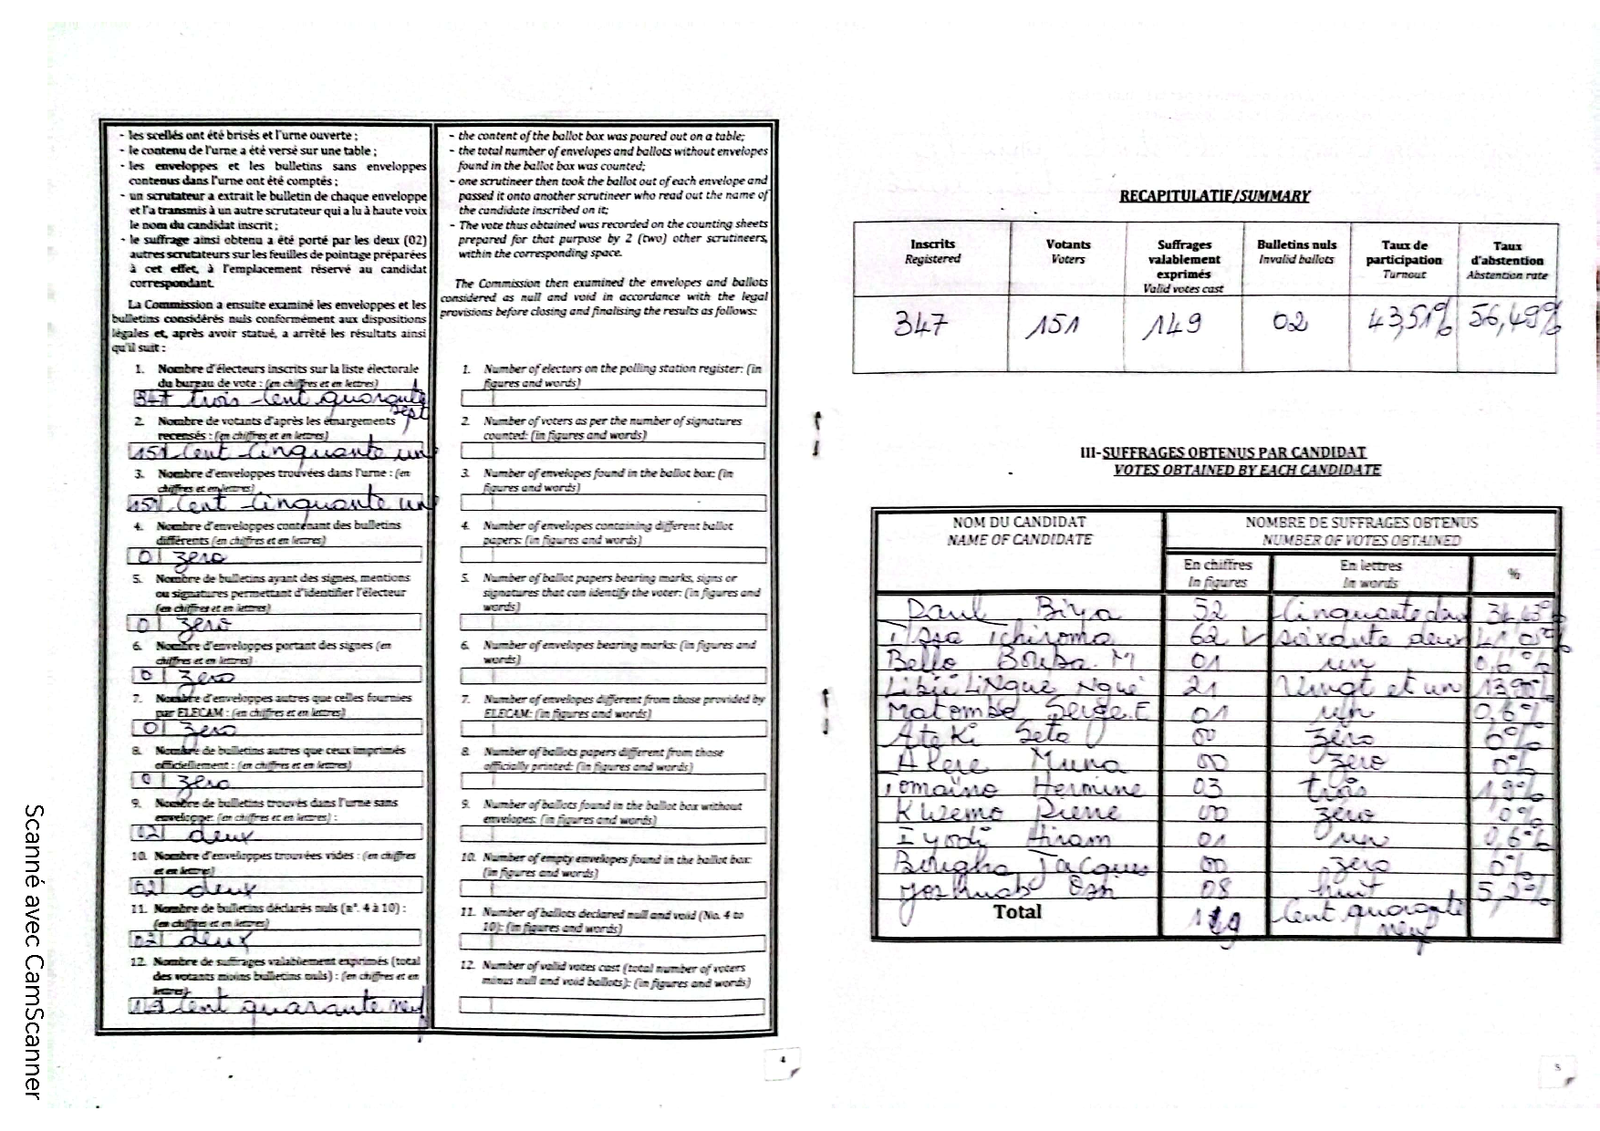 - les scellés ont été brisés et l'urne ouverte ;
- le contenu de l'urne a été versé sur une table ;
- les enveloppes et les bulletins sans enveloppes
contenus dans l'urne ont été comptés ;
- un scrutateur a extrait le bulletin de chaque enveloppe
et l'a transmis à un autre scrutateur qui a lu à haute voix
le nom du candidat inscrit ;
- le suffrage ainsi obtenu a été porté par les deux (02)
autres scrutateurs sur les feuilles de pointage préparées
à cet effet, à l'emplacement réservé au candidat
correspondant.
La Commission a ensuite examiné les enveloppes et les
bulletins considérés nuls conformément aux dispositions
légales et, après avoir statué, a arrêté les résultats ainsi
qu'il suit :
1. Nombre d'électeurs inscrits sur la liste électorale
du bureau de vote : (en chiffres et en lettres)
347 trois cent quarante
sept
2. Nombre de votants d'après les émargements
recensés : (en chiffres et en lettres)
151 Cent Cinquante un
3. Nombre d'enveloppes trouvées dans l'urne : (en
chiffres et en lettres)
151 Cent Cinquante un
4. Nombre d'enveloppes contenant des bulletins
différents (en chiffres et en lettres)
0 zero
5. Nombre de bulletins ayant des signes, mentions
ou signatures permettant d'identifier l'électeur
(en chiffres et en lettres)
0 zero
6. Nombre d'enveloppes portant des signes (en
chiffres et en lettres)
0 zero
7. Nombre d'enveloppes autres que celles fournies
par ELECAM : (en chiffres et en lettres)
0 zero
8. Nombre de bulletins autres que ceux imprimés
officiellement : (en chiffres et en lettres)
0 zero
9. Nombre de bulletins trouvés dans l'urne sans
enveloppe: (en chiffres et en lettres) :
02 deux
10. Nombre d'enveloppes trouvées vides : (en chiffres
et en lettres)
02 deux
11. Nombre de bulletins déclarés nuls (n°. 4 à 10) :
(en chiffres et en lettres)
02 deux
12. Nombre de suffrages valablement exprimés (total
des votants moins bulletins nuls) : (en chiffres et en
lettres)
149 Cent quarante neuf
- the content of the ballot box was poured out on a table;
- the total number of envelopes and ballots without envelopes
found in the ballot box was counted;
- one scrutineer then took the ballot out of each envelope and
passed it onto another scrutineer who read out the name of
the candidate inscribed on it;
- The vote thus obtained was recorded on the counting sheets
prepared for that purpose by 2 (two) other scrutineers,
within the corresponding space.
The Commission then examined the envelopes and ballots
considered as null and void in accordance with the legal
provisions before closing and finalising the results as follows:
1. Number of electors on the polling station register: (in
figures and words)
2. Number of voters as per the number of signatures
counted: (in figures and words)
3. Number of envelopes found in the ballot box: (in
figures and words)
4. Number of envelopes containing different ballot
papers: (in figures and words)
5. Number of ballot papers bearing marks, signs or
signatures that can identify the voter: (in figures and
words)
6. Number of envelopes bearing marks: (in figures and
words)
7. Number of envelopes different from those provided by
ELECAM: (in figures and words)
8. Number of ballots papers different from those
officially printed: (in figures and words)
9. Number of ballots found in the ballot box without
envelopes: (in figures and words)
10. Number of empty envelopes found in the ballot box:
(in figures and words)
11. Number of ballots declared null and void (No. 4 to
10): (in figures and words)
12. Number of valid votes cast (total number of voters
minus null and void ballots): (in figures and words)
4
RECAPITULATIF/SUMMARY
Inscrits Votants Suffrages Bulletins nuls Taux de Taux
Registered Voters valablement Invalid ballots participation d'abstention
exprimés Turnout Abstention rate
Valid votes cast
347 151 149 02 43,51% 56,49%
III-SUFFRAGES OBTENUS PAR CANDIDAT
VOTES OBTAINED BY EACH CANDIDATE
NOM DU CANDIDAT NOMBRE DE SUFFRAGES OBTENUS
NAME OF CANDIDATE NUMBER OF VOTES OBTAINED
En chiffres En lettres %
In figures In words
Paul Biya 52 Cinquante deux 34,43%
Issa Tchiroma 62 soixante deux 41,05%
Bello Bouba. M 01 un 0,6%
Libii Li Ngue Ngué 21 Vingt et un 13,90%
Matomba Serge. E 01 un 0,6%
Ateki Seta 00 zéro 0%
Akere Muna 00 zéro 0%
Tomaïno Hermine 03 trois 1,9%
Kwemo Pierre 00 zéro 0%
Iyodi Hiram 01 un 0,6%
Bougha Jacques 00 zero 0%
Joshua Osh 08 huit 5,2%
Total 149 Cent quarante
neuf
5
Scanné avec CamScanner